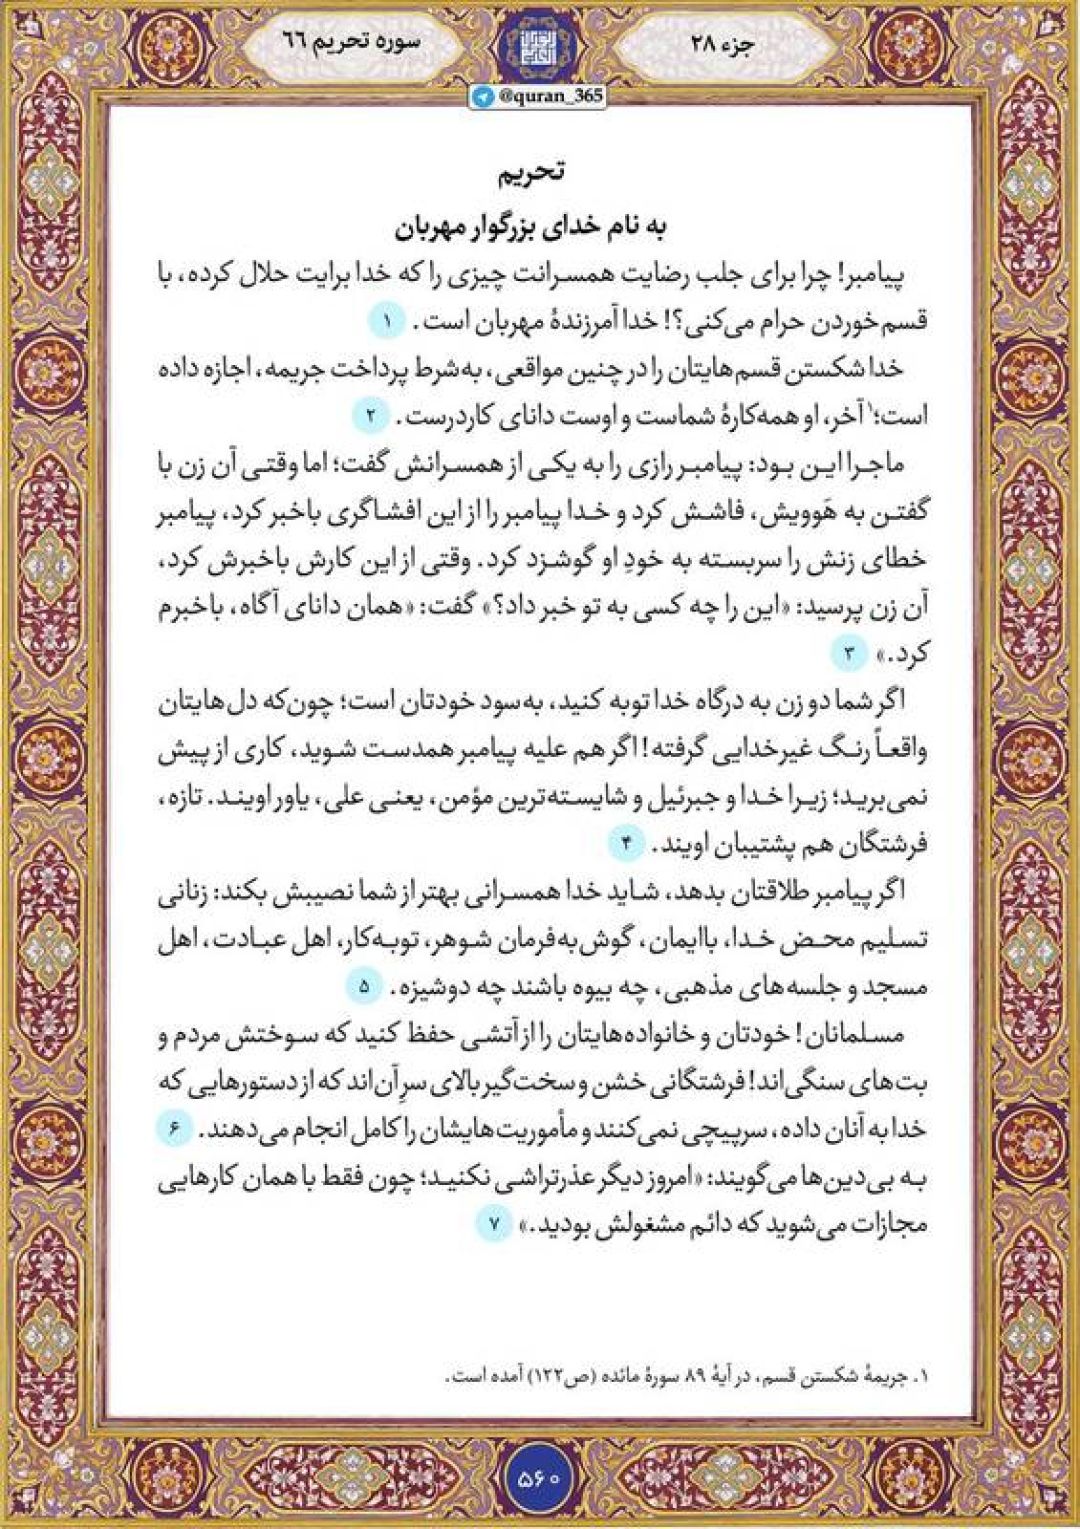 جزء ۲۸
سوره تحریم ۶۶
@quran_365
تحریم
به نام خدای بزرگوار مهربان
پیامبر! چرا برای جلب رضایت همسرانت چیزی را که خدا برایت حلال کرده، با
قسم‌خوردن حرام می‌کنی؟! خدا آمرزندهٔ مهربان است. ۱
خدا شکستن قسم‌هایتان را در چنین مواقعی، به‌شرط پرداخت جریمه، اجازه داده
است؛۱ آخر، او همه‌کارهٔ شماست و اوست دانای کاردرست. ۲
ماجرا این بود: پیامبر رازی را به یکی از همسرانش گفت؛ اما وقتی آن زن با
گفتن به هَوویش، فاشش کرد و خدا پیامبر را از این افشاگری باخبر کرد، پیامبر
خطای زنش را سربسته به خودِ او گوشزد کرد. وقتی از این کارش باخبرش کرد،
آن زن پرسید: «این را چه کسی به تو خبر داد؟» گفت: «همان دانای آگاه، باخبرم
کرد.» ۳
اگر شما دو زن به درگاه خدا توبه کنید، به‌سود خودتان است؛ چون‌که دل‌هایتان
واقعاً رنگ غیرخدایی گرفته! اگر هم علیه پیامبر همدست شوید، کاری از پیش
نمی‌برید؛ زیرا خدا و جبرئیل و شایسته‌ترین مؤمن، یعنی علی، یاور اویند. تازه،
فرشتگان هم پشتیبان اویند. ۴
اگر پیامبر طلاقتان بدهد، شاید خدا همسرانی بهتر از شما نصیبش بکند: زنانی
تسلیم محض خدا، باایمان، گوش‌به‌فرمان شوهر، توبه‌کار، اهل عبادت، اهل
مسجد و جلسه‌های مذهبی، چه بیوه باشند چه دوشیزه. ۵
مسلمانان! خودتان و خانواده‌هایتان را از آتشی حفظ کنید که سوختش مردم و
بت‌های سنگی‌اند! فرشتگانی خشن و سخت‌گیر بالای سرِ آن‌اند که از دستورهایی که
خدا به آنان داده، سرپیچی نمی‌کنند و مأموریت‌هایشان را کامل انجام می‌دهند. ۶
به بی‌دین‌ها می‌گویند: «امروز دیگر عذرتراشی نکنید؛ چون فقط با همان کارهایی
مجازات می‌شوید که دائم مشغولش بودید.» ۷
۱. جریمهٔ شکستن قسم، در آیهٔ ۸۹ سورهٔ مائده (ص۱۲۲) آمده است.
۵۶۰